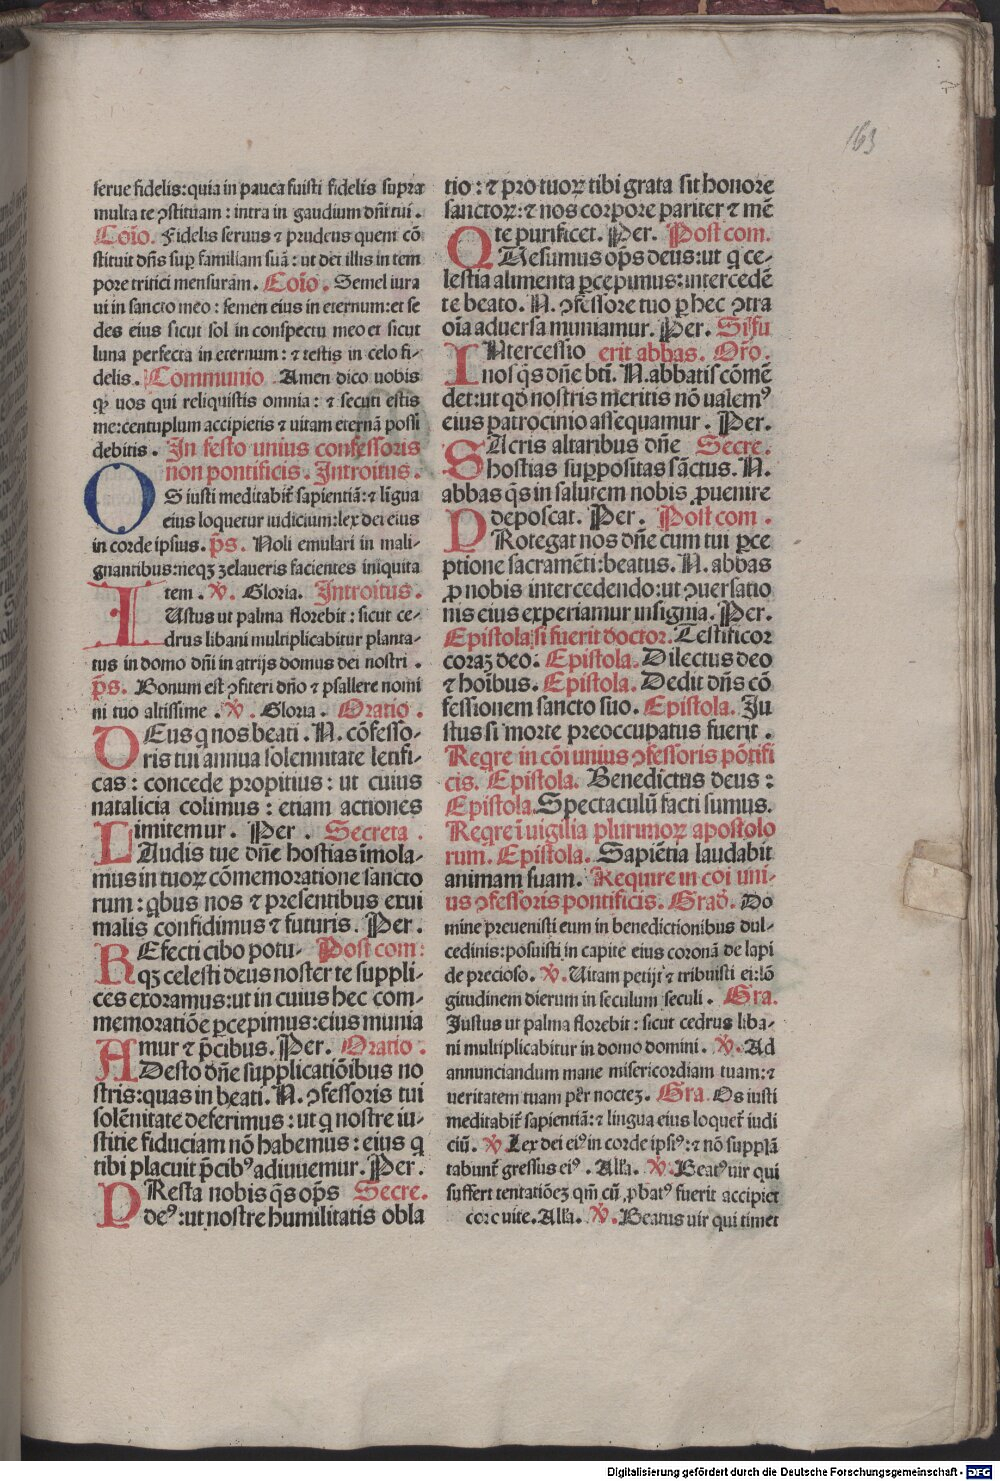 163
serue fidelis:quia in pauca fuisti fidelis supra
multa te ꝯstituam : intra in gaudium dñi tui .
Cōio. Fidelis seruus ⁊ prudens quem cō
stituit dñs suꝑ familiam suā : ut det illis in tem
pore tritici mensuram. Cōio . Semel iura
ui in sancto meo : semen eius in eternum:et se
des eius sicut sol in conspectu meo et sicut
luna perfecta in eternum : ⁊ testis in celo fi-
delis. Communio Amen dico uobis
ꝙ uos qui reliquistis omnia : ⁊ secuti estis
me:centuplum accipietis ⁊ uitam eternā possi
debitis . In festo unius confessoris
non pontificis. Introitus.
OS iusti meditabit̄ sapientiā:⁊ līgua
eius loquetur iudicium:lex dei eius
in corde ipsius. p̄s. Noli emulari in mali-
gnantibus:neqꝫ zelaueris facientes iniquita
tem . ℣. Gloria. Introitus.
IUstus ut palma florebit : sicut ce-
drus libani multiplicabitur planta-
tus in domo dñi in atrijs domus dei nostri .
p̄s. Bonum est ꝯfiteri dño ⁊ psallere nomi
ni tuo altissime . ℣. Gloria. Oratio .
DEus q̄ nos beati . N. cōfesso-
ris tui annua solennitate letifi-
cas : concede propitius : ut cuius
natalicia colimus : etiam actiones
imitemur . Per . Secreta .
LAudis tue dñe hostias īmola-
mus in tuoꝝ cōmemoratione sancto
rum : qbus nos ⁊ presentibus exui
malis confidimus ⁊ futuris. Per.
REfecti cibo potu- Post com:
qꝫ celesti deus noster te suppli-
ces exoramus:ut in cuius hec com-
memoratiōe ꝑcepimus:eius munia
mur ⁊ p̄cibus. Per. Oratio .
ADesto dñe supplicatiōibus no
stris:quas in beati. N. ꝯfessoris tui
solēnitate deferimus : ut q̄ nostre iu-
stitie fiduciam nō habemus : eius q̄
tibi placuit p̄cibꝰ adiuuemur. Per.
PResta nobis q̄s op̄s Secre.
deꝰ:ut nostre humilitatis obla
tio : ⁊ pro tuoꝝ tibi grata sit honore
sanctoꝝ:⁊ nos corpore pariter ⁊ mē
te purificet. Per. Post com.
QUesumus op̄s deus:ut q̄ ce-
lestia alimenta ꝑcepimus:intercedē
te beato. N. ꝯfessore tuo ꝑ hec ꝯtra
oīa aduersa muniamur. Per. Si fu
INtercessio erit abbas. Orō.
nos q̄s dñe bti. N. abbatis cōmē
det:ut qđ nostris meritis nō ualemꝰ
eius patrocinio assequamur. Per.
SAcris altaribus dñe Secre.
hostias suppositas sāctus. N.
abbas q̄s in salutem nobis ꝓuenire
deposcat. Per. Post com .
PRotegat nos dñe cum tui ꝑce
ptione sacramēti:beatus. N. abbas
ꝓ nobis intercedendo:ut ꝯuersatio
nis eius experiamur insignia. Per.
Epistola:si fuerit doctor. Testificor
coraꝫ deo: Epistola. Dilectus deo
⁊ hoībus. Epistola. Dedit dñs cō
fessionem sancto suo. Epistola. Ju
stus si morte preoccupatus fuerit .
Reqre in cōi unius ꝯfessoris pōtifi
cis. Epistola. Benedictus deus :
Epistola.Spectaculū facti sumus.
Reqre ī uigilia plurimoꝝ apostolo
rum. Epistola. Sapiētia laudabit
animam suam. Require in coi uni-
us ꝯfessoris pontificis. Grad̄. Do
mine preuenisti eum in benedictionibus dul-
cedinis:posuisti in capite eius coronā de lapi
de precioso. ℣. Uitam petijt ⁊ tribuisti ei:lō
gitudinem dierum in seculum seculi . Gra.
Justus ut palma florebit : sicut cedrus liba-
ni multiplicabitur in domo domini . ℣. Ad
annunciandum mane misericordiam tuam:⁊
ueritatem tuam per nocteꝫ. Gra. Os iusti
meditabit̄ sapientiā:⁊ lingua eius loquet̄ iudi
ciū. ℣ Lex dei eiꝰ in corde ipsiꝰ:⁊ nō supplā
tabunt̄ gressus eiꝰ . Alła. ℣. Beatꝰ uir qui
suffert tentatiōeꝫ qm̄ cū ꝓbatꝰ fuerit accipiet
coronā uite.Alła. ℣. Beatus uir qui timet
Digitalisierung gefördert durch die Deutsche Forschungsgemeinschaft - DFG